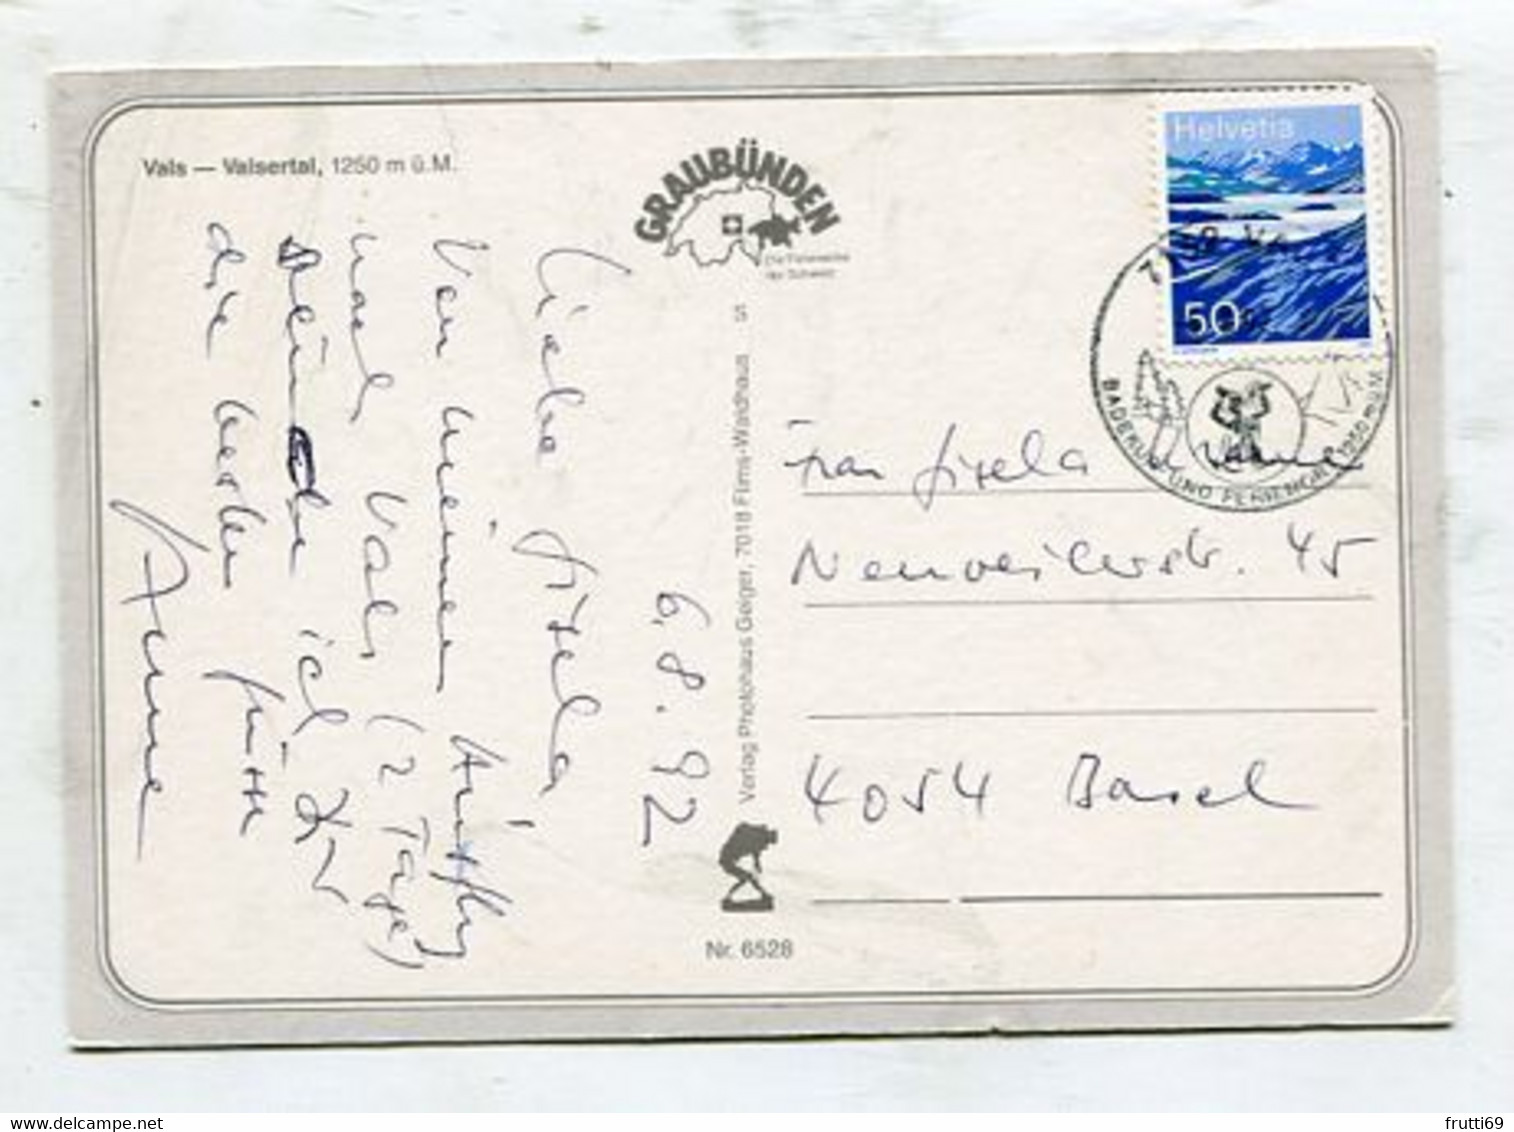 Vals — Valsertal, 1250 m ü.M.
GRAUBÜNDEN
Die Ferienecke
der Schweiz
Helvetia
50
7132 VALS
BADEKUR UND FERIENORT 1250 m ü.M.
6.8.92
Liebe Gisela
Von meinem Ausflug
nach Vals (2 Tage)
ich Dir
die besten Grüsse
Anne
Verlag Photohaus Geiger, 7018 Flims-Waldhaus S
Nr. 6528
Frau Gisela
Neuweilerstr. 45
4054 Basel
frutti69